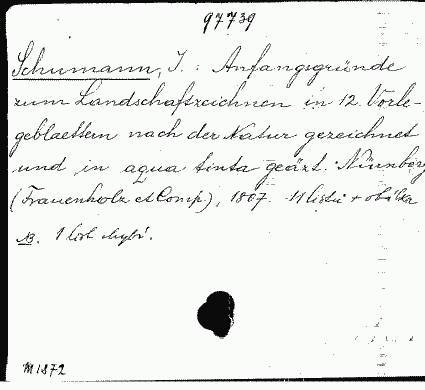 97739
Schumann, J. : Anfangsgründe
zum Landschaftzeichnen in 12 Vorle-
geblaettern nach der Natur gezeichnet
und in aqua tinta geäzt. Nürnberg
(Frauenholz et Comp.), 1807. 11 listů + obálka
NB. 1 list chybí.
M 1872